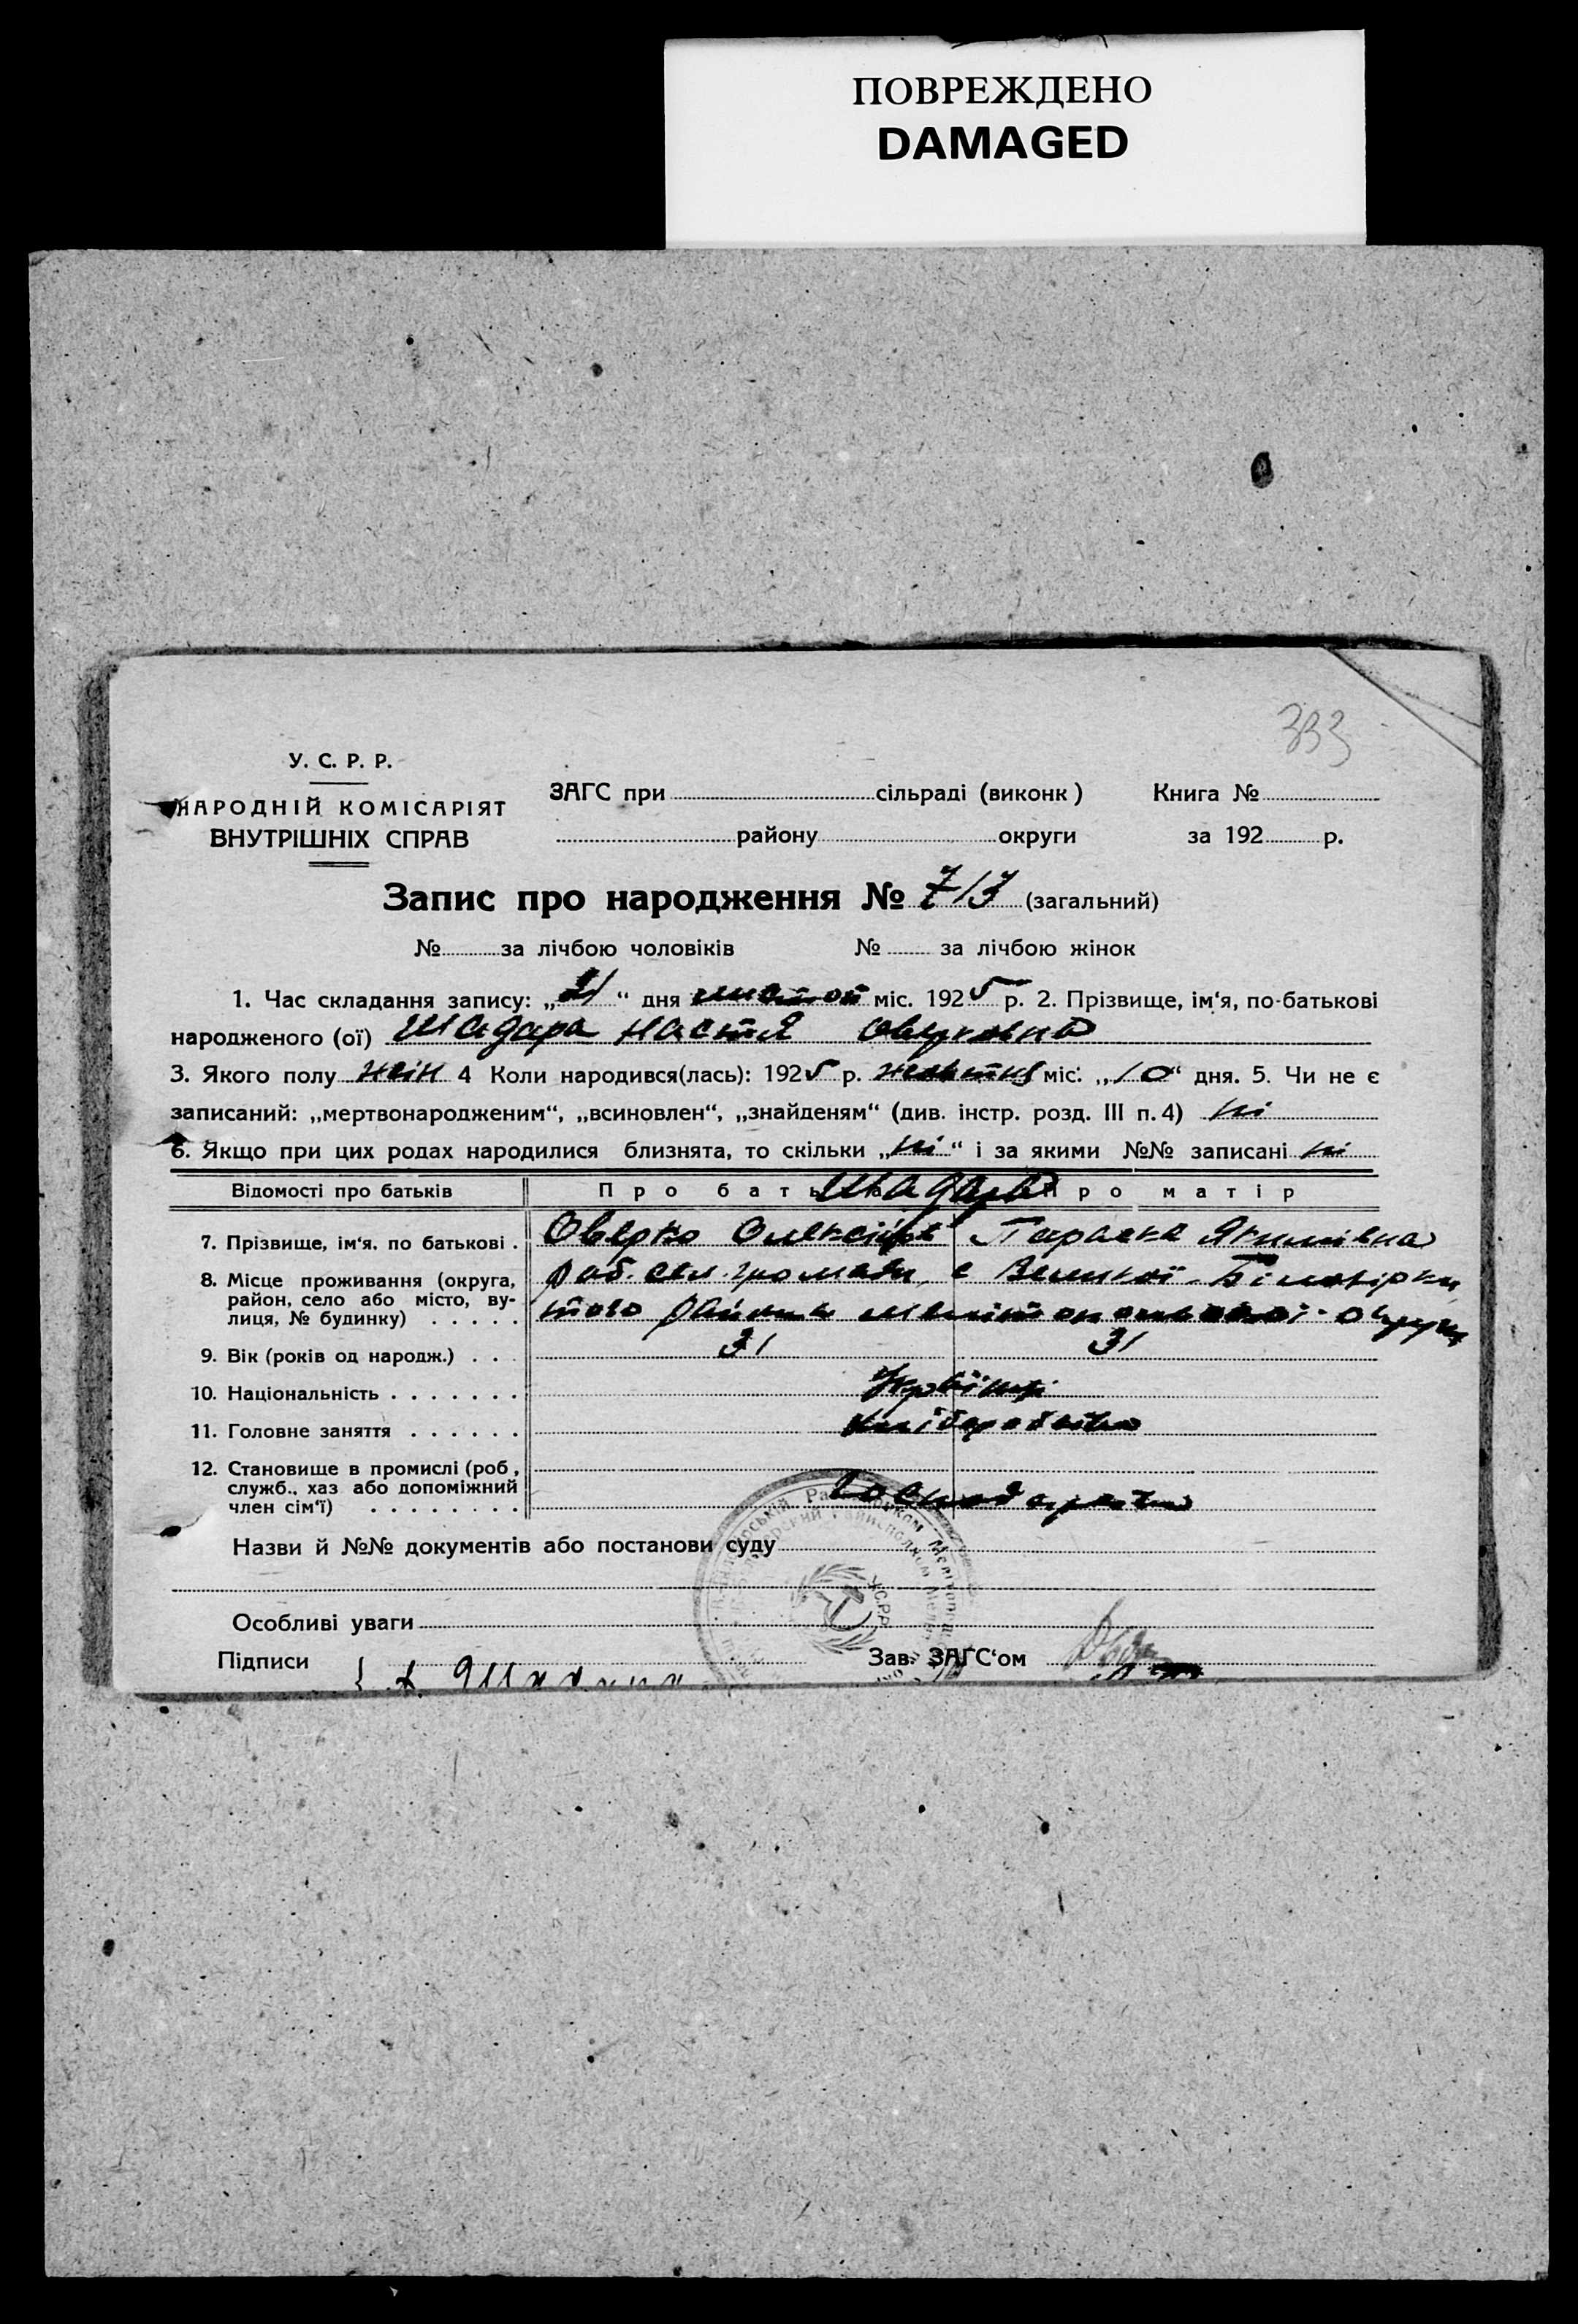 ПОВРЕЖДЕНО
DAMAGED
333
У. С. Р. Р.
НАРОДНІЙ КОМІСАРІЯТ
ВНУТРІШНІХ СПРАВ
ЗАГС при сільраді (виконк) Книга №
району округи за 192 р.
Запис про народження № 713 (загальний)
№ за лічбою чоловіків № за лічбою жінок
1. Час складання запису: „21“ дня листоп міс. 1925 р. 2. Прізвище, ім‘я, по-батькові
народженого (ої) Шадара Настя Оверковна
3. Якого полу жін 4 Коли народився(лась): 1925 р. жовтня міс. „10“ дня. 5. Чи не є
записаний: „мертвонародженим“, „всиновлен“, „знайденям“ (див. інстр. розд. III п. 4) ні
6. Якщо при цих родах народилися близнята, то скільки „ні“ і за якими №№ записані ні
Відомості про батьків Про бать Шадара Про матір
7. Прізвище, ім‘я. по батькові . Оверко Олексійов Параска Якимівна
8. Місце проживання (округа, район, село або місто, вулиця, № будинку) . . . . . с Великої Білозірки
того району округи
9. Вік (років од народж.) . . . 31 31
10. Національність . . . . . . . Українці
11. Головне заняття . . . . . . хліборобство
12. Становище в промислі (роб, служб., хаз або допоміжний член сім‘ї) . . . . . . . .
Назви й №№ документів або постанови суду
Особливі уваги
Підписи Зав. ЗАГС‘ом
УСРР